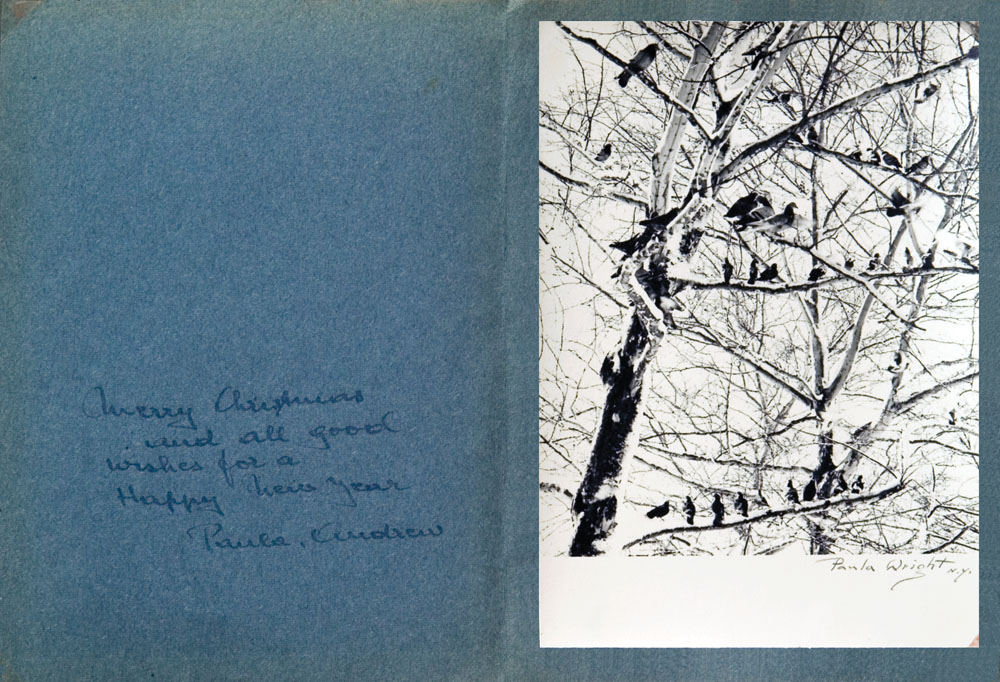 Merry Christmas
and all good
wishes for a
Happy New Year
Paula. Andrew
Paula Wright N.Y.